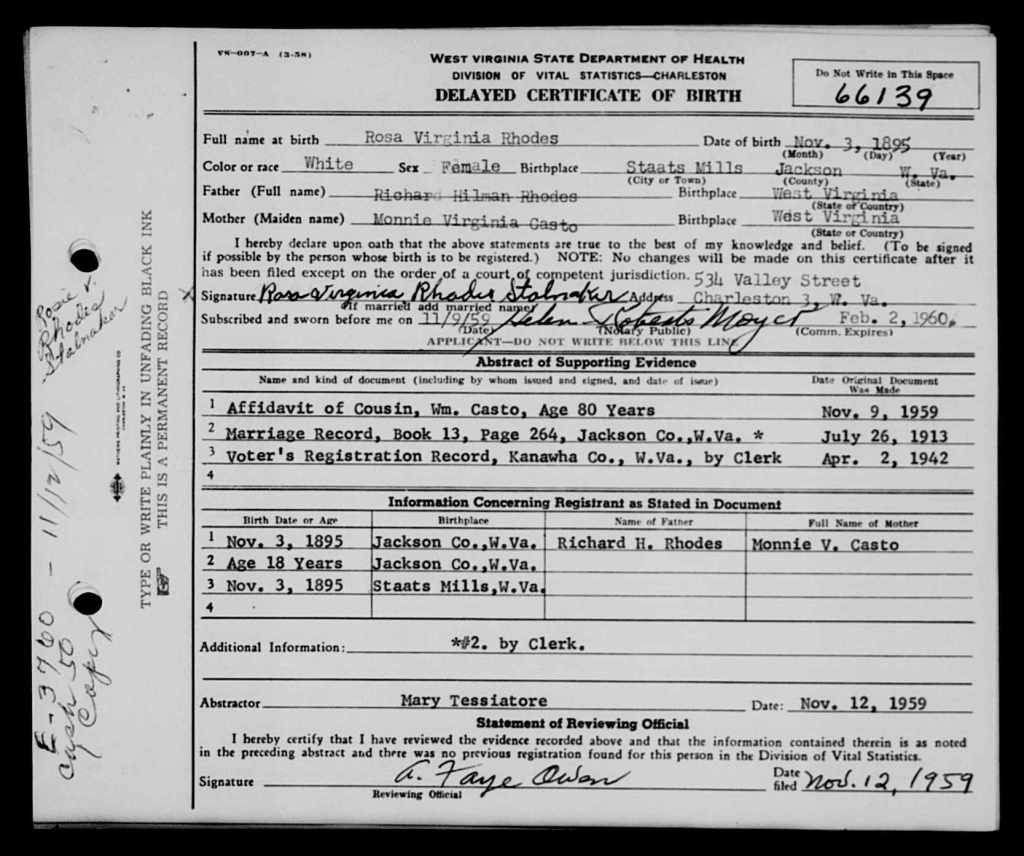 VS-007-A (3-58)
WEST VIRGINIA STATE DEPARTMENT OF HEALTH
DIVISION OF VITAL STATISTICS—CHARLESTON
DELAYED CERTIFICATE OF BIRTH
Do Not Write in This Space
66139
Full name at birth Rosa Virginia Rhodes Date of birth Nov. 3, 1895
(Month) (Day) (Year)
Color or race White Sex Female Birthplace Staats Mills Jackson W. Va.
(City or Town) (County) (State)
Father (Full name) Richard Hilman Rhodes Birthplace West Virginia
(State or Country)
Mother (Maiden name) Monnie Virginia Casto Birthplace West Virginia
(State or Country)
I hereby declare upon oath that the above statements are true to the best of my knowledge and belief. (To be signed
if possible by the person whose birth is to be registered.) NOTE: No changes will be made on this certificate after it
has been filed except on the order of a court of competent jurisdiction. 534 Valley Street
X Signature Rosa Virginia Rhodes Stalnaker Address Charleston 3, W. Va.
(If married add married name)
Subscribed and sworn before me on 11/9/59 Helen Roberts Moyer Feb. 2, 1960.
(Date) (Notary Public) (Comm. Expires)
APPLICANT—DO NOT WRITE BELOW THIS LINE
Abstract of Supporting Evidence
Name and kind of document (including by whom issued and signed, and date of issue) Date Original Document
Was Made
1 Affidavit of Cousin, Wm. Casto, Age 80 Years Nov. 9, 1959
2 Marriage Record, Book 13, Page 264, Jackson Co.,W.Va. * July 26, 1913
3 Voter's Registration Record, Kanawha Co., W.Va., by Clerk Apr. 2, 1942
4
Information Concerning Registrant as Stated in Document
Birth Date or Age Birthplace Name of Father Full Name of Mother
1 Nov. 3, 1895 Jackson Co.,W.Va. Richard H. Rhodes Monnie V. Casto
2 Age 18 Years Jackson Co.,W.Va.
3 Nov. 3, 1895 Staats Mills,W.Va.
4
Additional Information: *#2. by Clerk.
Abstractor Mary Tessiatore Date: Nov. 12, 1959
Statement of Reviewing Official
I hereby certify that I have reviewed the evidence recorded above and that the information contained therein is as noted
in the preceding abstract and there was no previous registration found for this person in the Division of Vital Statistics.
Signature A. Faye Owen Date filed Nov. 12, 1959
Reviewing Official
TYPE OR WRITE PLAINLY IN UNFADING BLACK INK
THIS IS A PERMANENT RECORD
Rosie V.
Rhodes
Stalnaker
E-3760 - 11/12/59
Cash 50
Copy